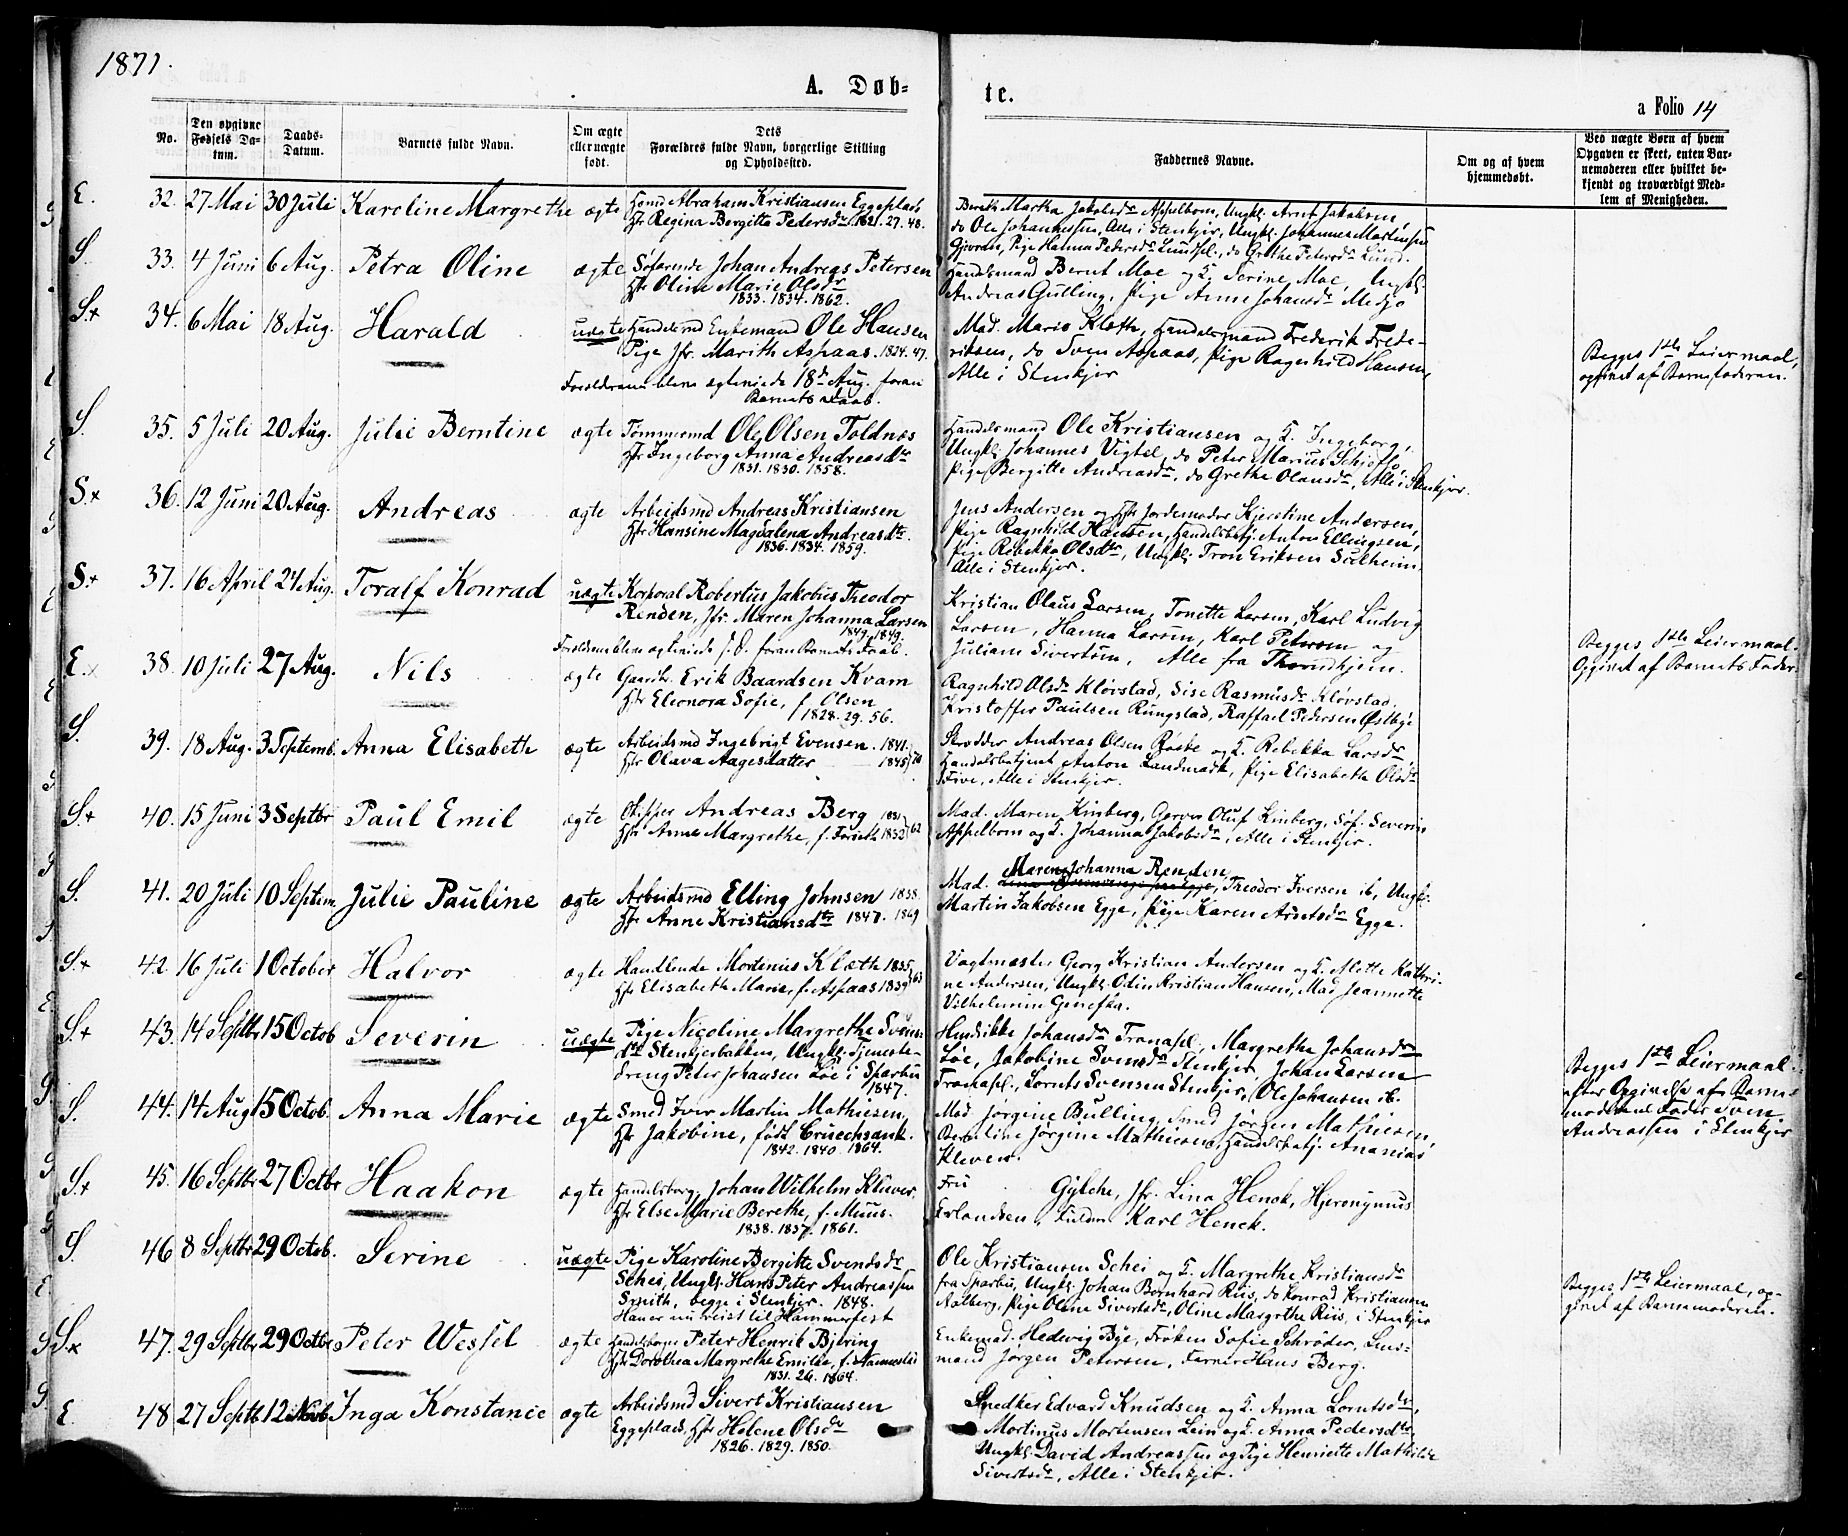 1871.
A. Døb-
te.
a Folio 14
No.
Den opgivne Fødsels Datum.
Daabs-Datum.
Barnets fulde Navn.
Om ægte eller uægte født.
Dets Forældres fulde Navn, borgerlige Stilling og Opholdssted.
Faddernes Navne.
Om og af hvem hjemmedøbt.
Ved uægte Børn af hvem Opgaven er skeet, enten Barnemoderen eller hvilket bekjendt og troværdigt Medlem af Menigheden.
E. 32. 27 Mai 30 Juli Karoline Margrethe ægte
Abraham Kristiansen Eggeplads
Hr Regina Bergitta Pedersdr 1821. 27. 48.
Bereth Martha Jakobsdr Appelbom, Ungk. Arnt Jakobsen,
do Ole Johannessen, Alle i Stenkjer, Ungk. Johannes Martinsen
Gjevran, Pige Hanna Pedersdr Lundspl., do Grethe Petersdr Lund.
S. 33. 4 Juni 6 Aug. Petra Oline ægte
Søfarende Johan Andreas Petersen
Hr Oline Marie Olsdr
1833. 1834. 1862.
Handelsmand Bernt Moe og K. Serine Moe, Ungk.
Andreas Gulling, Pige Anne Johansdr Medjo
S.+ 34. 6 Mai 18 Aug. Harald uægte
Handelsmd Enkemand Ole Hansen
Pige Jfr. Marith Aspaas. 1824. 47.
Forældrene bleve ægteviede 18de Aug. foran
Barnets Daab.
Mad. Marie Klæth, Handelsmand Frederik Frede-
riksen, do Sven Aspaas, Pige Ragnhild Hansen,
Alle i Stenkjer
Begges 1ste Leiermaal,
opgivet af Barnefaderen.
S. 35. 5 Juli 20 Aug. Julie Berntine ægte
Tømmermd Ole Olsen Toldnes
Hr Ingeborg Anna Andreasdr
1831. 1830. 1858.
Handelsmand Ole Kristiansen og K. Ingeborg,
Ungk. Johannes Vigtel, do Peter Marius Schjefte,
Pige Bergitte Andreasdr, do Grethe Olausdr, Alle i Stenkjer.
S.+ 36. 12 Juni 20 Aug. Andreas ægte
Arbeidsmd Andreas Kristiansen
Hr Hansine Magdalena Andreasdtr.
1836. 1834. 1859.
Jens Andersen og Hr Jordemoder Kjerstine Andersen,
Pige Ragnhild Hansen, Handelsbetj. Anton Ellingsen,
Pige Rebekka Olsdtr, Ungk. Tron Eriksen Sulheim.
Alle i Stenkjer.
S.+ 37. 16 April 24 Aug. Toralf Konrad uægte
Korporal Robertus Jakobus Theodor
Renden, Jfr. Maren Johanna Larsen
1849. 1849.
Forældrene bleve ægteviede s. D. foran Barnets Daab.
Kristian Olaus Larsen, Tonette Larsen, Karl Ludvig
Larsen, Hanna Larsen, Karl Petersen og
Juliane Sivertsen, Alle fra Throndhjem.
Begges 1ste Leiermaal.
Opgivet af Barnets Fader.
E. 38. 10 Juli 27 Aug. Nils ægte
Gaardbr. Erik Baardsen Kvam
Hr Eleonora Sofie, f. Olsen
1828. 29. 56.
Ragnhild Olsdr Kløvstad, Sise Rasmusdr Kløvstad,
Kristoffer Paulsen Rungstad, Raffael Pedersen Østbye
S. 39. 18 Aug. 3 Septemb. Anna Elisabeth ægte
Arbeidsmd Ingebrigt Evensen. 1841.
Hr Olava Aagesdatter 1845. 70
Skrædder Andreas Olsen Røske og K. Rebekka Larsdr,
Handelsbetjent Anton Landmark, Pige Elisabeth Olsdr
Five, Alle i Stenkjer.
S.+ 40. 15 Juni 3 Septbr Paul Emil ægte
Skipper Andreas Berg 1831
Hr Anne Margrethe, f. Forseth 1833. 62
Mad. Maren Kinberg, Garver Oluf Kinberg, Søf. Severin
Appelbom og K. Johanna Jakobsdr, Alle i Stenkjer.
S. 41. 20 Juli 10 Septem. Julie Pauline ægte
Arbeidsmd Elling Johnsen 1838.
Hr Anne Kristiansdtr 1847. 1869
Maren Johanna Renden,
Mad. Theodor Iversen ib, Ungk.
Martin Jakobsen Egge, Pige Karen Arntsdr Egge.
S.+ 42. 16 Juli 1 October Halvor ægte
Handlende Mortenius Klæth 1835
Hr Elisabeth Marie, f. Aspaas 1839. 63
Vagtmester Georg Kristian Andersen og K. Mette Kathri-
ne Andersen, Ungk. Odin Kristian Hansen, Mad. Jeannette
Vilhelmine Genefka.
S.+ 43. 14 Septbr 15 Octob Severin uægte
Pige Nicoline Margrethe Svens-
dtr Stenkjerbakken, Ungk. Tjeneste-
dreng Peter Johansen Løe i Sparbu
1847.
Hendrikke Johansdr Tranaspl., Margrethe Johansdr
Løe, Jakobine Svensdr Stenkjer, Johan Larsen
Tranaspl., Lornts Svensen Stenkjer, Ole Johansen ib.
Begges 1ste Leiermaal
efter Opgivelse af Barne-
moderens Fader Sven
Andreassen i Stenkjer
S. 44. 14 Aug 15 Octob. Anna Marie ægte
Smed Iver Martin Mathiesen,
Hr Jakobine, født Cruechsank.
1842. 1840. 1864.
Mad. Jørgine Bulling, Smed Jørgen Mathiesen,
Berntine Jørgine Mathiesen, Handelsbetj. Ananias
Kleven.
S.+ 45. 16 Septbr 27 Octbr Haakon ægte
Handelsborg. Johan Wilhelm Klüwer.
Hr Else Marie Berethe, f. Muus.
1838. 1837. 1861.
Fru Gylche, Jfr. Lina Henck, Hjeronymus
Erlandsen, Fuldm. Karl Henck.
S. 46 8 Septbr 29 Octob. Serine uægte
Pige Karoline Bergitte Svendsdr
Schei, Ungk. Hans Peter Andreassen
Smith, begge i Stenkjer. 1848.
Han er nu reist til Hammerfest
Ole Kristiansen Schei og K. Margrethe Kristiansdr
fra Sparbu, Ungk. Johan Bernhard Riis, do Konrad Kristiansen
Aalberg, Pige Oline Sivertsdr, Oline Margrethe Riis, i Stenkjer
Begges 1ste Leiermaal, op-
givet af Barnemoderen.
S.+ 47. 29 Septbr 29 Octbr Peter Wessel ægte
Handelsborg Peter Henrik Bjelring
Hr Dorothea Margrethe Emilie, f. Nannestad
1831. 26. 1864.
Enkemad. Hedevig Bye, Frøken Sofie Schrøder, Lens-
mand Jørgen Petersen, Farver Hans Berg.
E. 48. 27 Septb 12 Novb Inga Konstance ægte
Arbeidsmd Sivert Kristiansen
Eggeplads, Hr Helene Olsdr
1826. 1829. 1850.
Snedker Edvard Knudsen og K. Anna Lorntsdr,
Martinus Mortensen Lein og K. Anna Pedersdtr,
Ungk. David Andreassen og Pige Henriette Mathilde
Sivertsdr, Alle i Stenkjer.